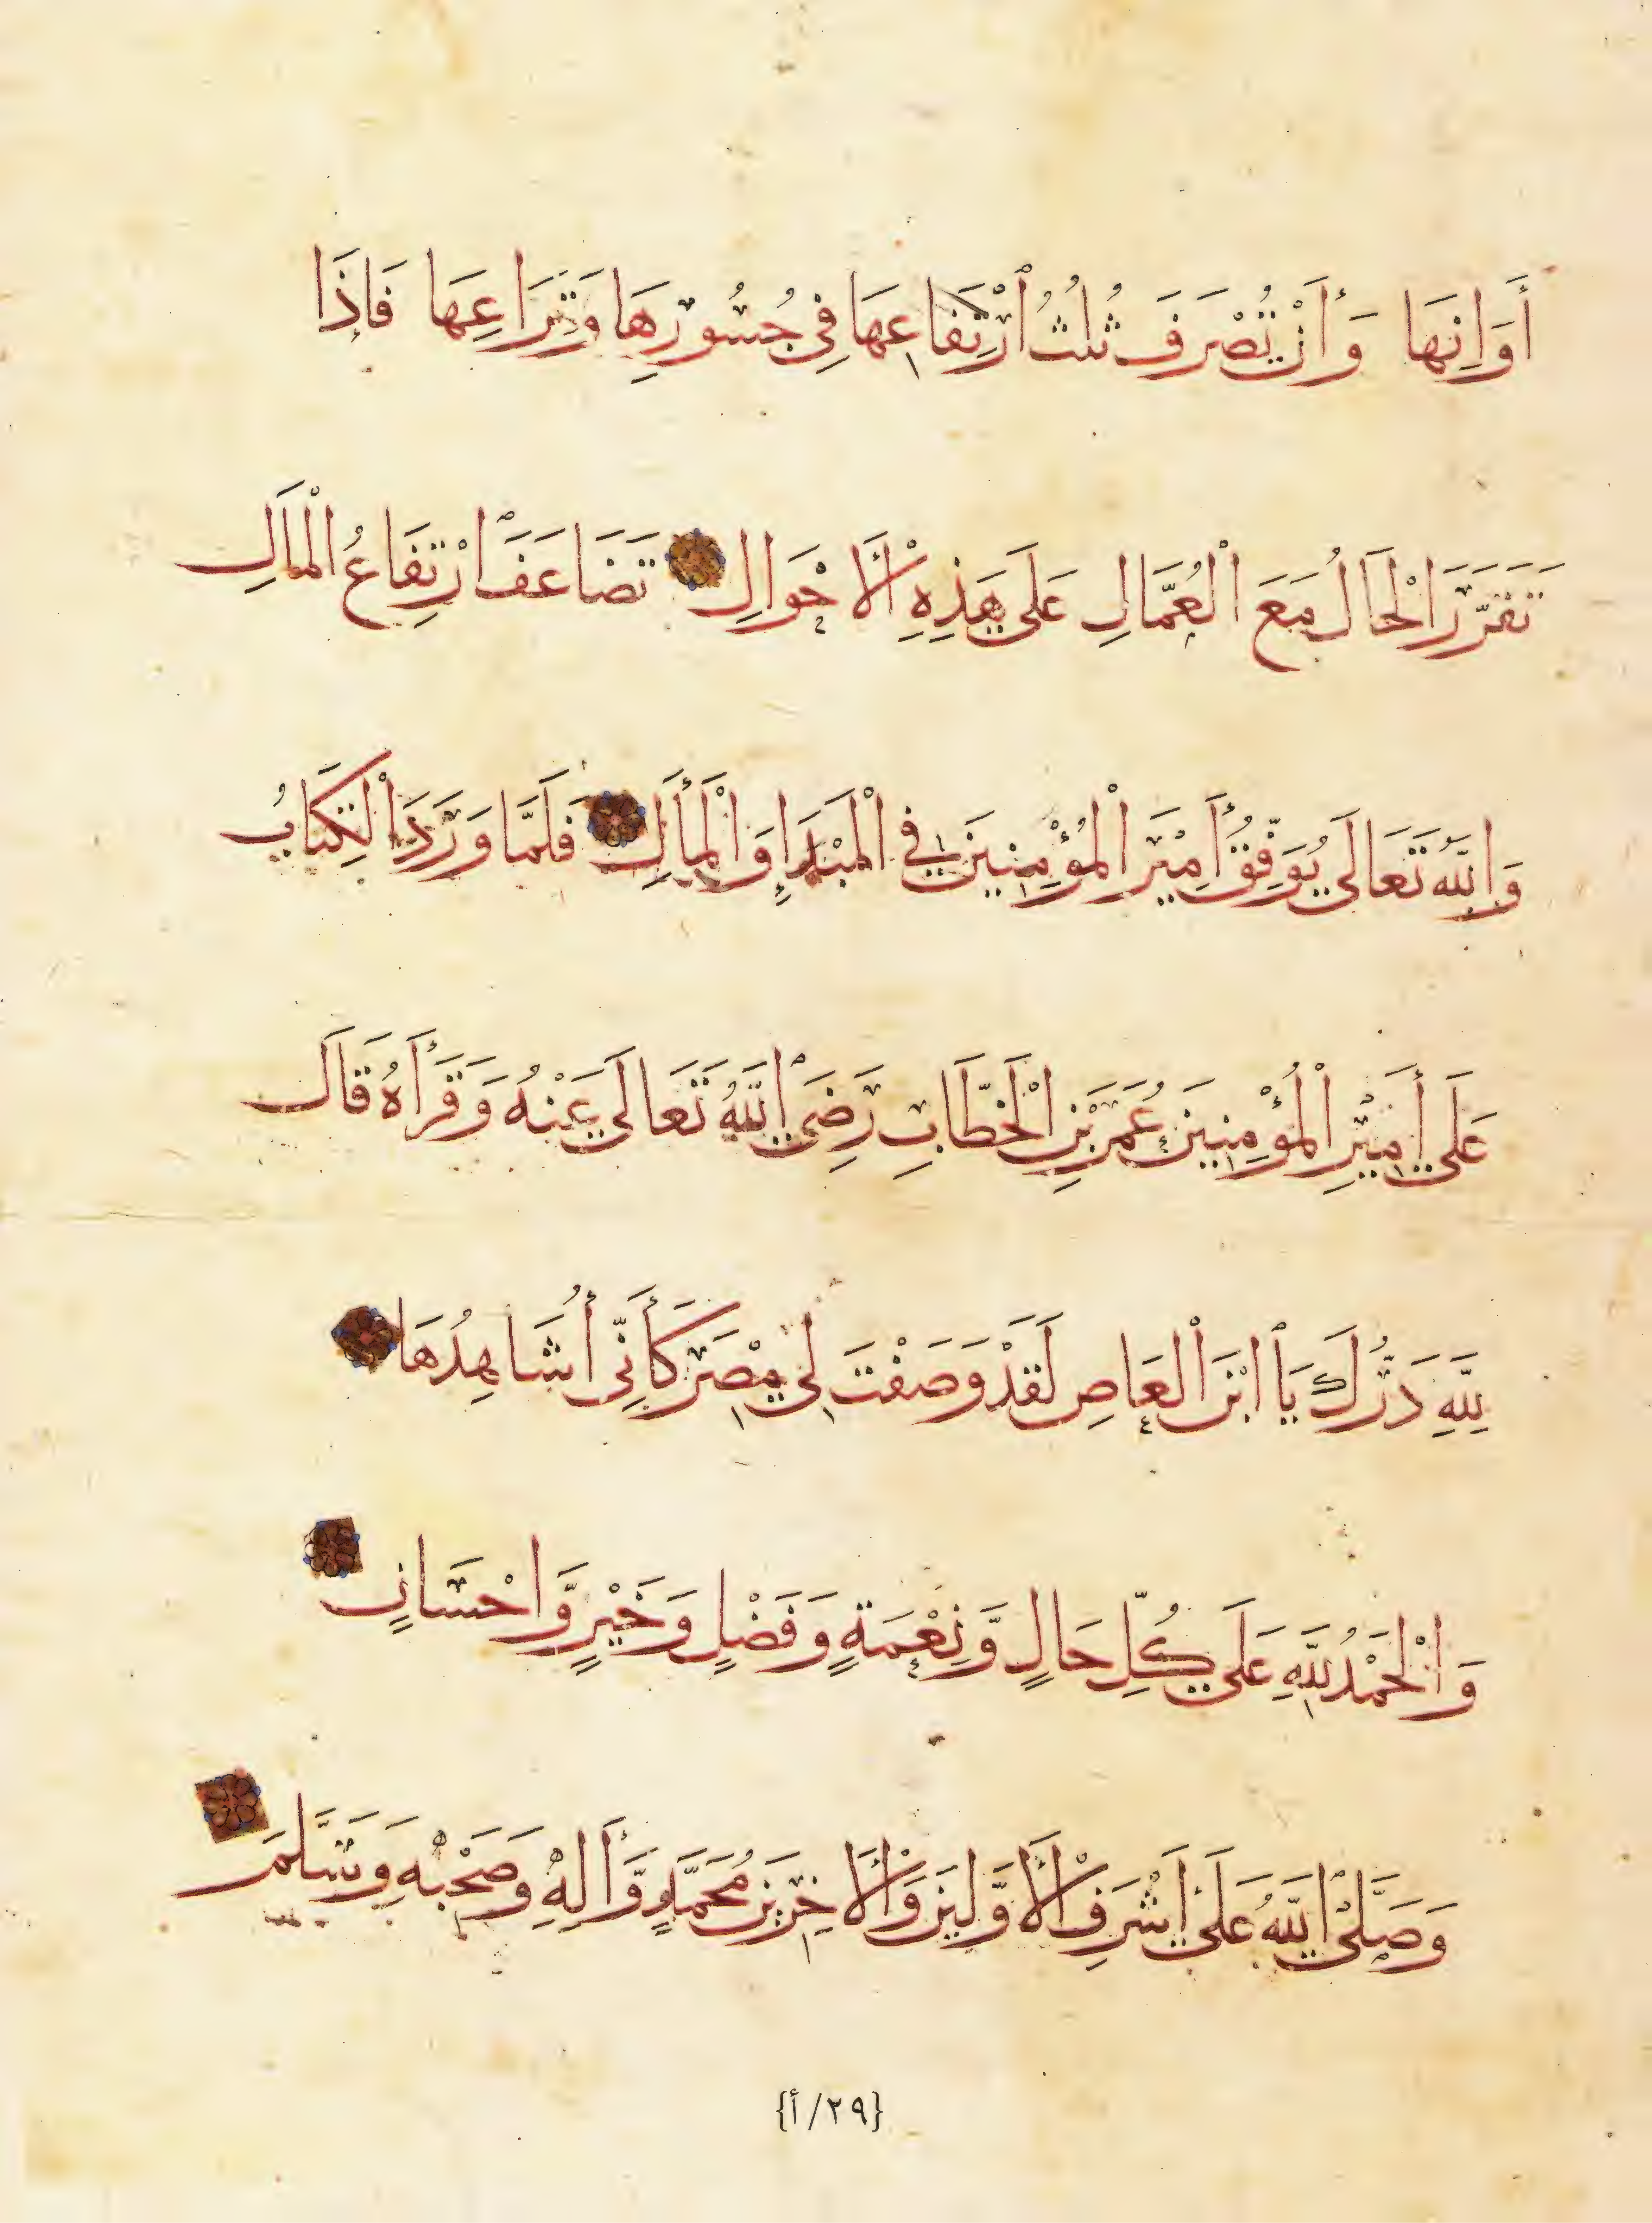 أَوَانِهَا وَأَنْ تُصْرَفَ ثُلُثُ ٱرْتِفَاعِهَا فِي جُسُورِهَا وَتِرَاعِهَا فَإِذَا
تَقَرَّرَ الْحَالُ مَعَ الْعُمَّالِ عَلَى هَذِهِ الْأَحْوَالِ تَضَاعَفَ ٱرْتِفَاعُ الْمَالِ
وَاللَّهُ تَعَالَى يُوَفِّقُ أَمِيْرَ الْمُؤْمِنِينَ فِي الْمَبْدَإِ وَالْمَآلِ فَلَمَّا وَرَدَ الْكِتَابُ
عَلَى أَمِيْرِ الْمُؤْمِنِينَ عُمَرَ بْنِ الْخَطَّابِ رَضِيَ ٱللَّهُ تَعَالَى عَنْهُ وَقَرَأَهُ قَالَ
لِلَّهِ دَرُّكَ يَا ٱبْنَ الْعَاصِ لَقَدْ وَصَفْتَ لِي مِصْرَ كَأَنِّي أُشَاهِدُهَا
وَالْحَمْدُ لِلَّهِ عَلَى كُلِّ حَالٍ وَّنِعْمَةٍ وَفَضْلٍ وَخَيْرٍ وَّإِحْسَانٍ
وَصَلَّى ٱللَّهُ عَلَى أَشْرَفِ الْأَوَّلِينَ وَالْأَخِرِينَ مُحَمَّدٍ وَّأَلِهِ وَصَحْبِهِ وَسَلَّمَ
{٢٩/أ}